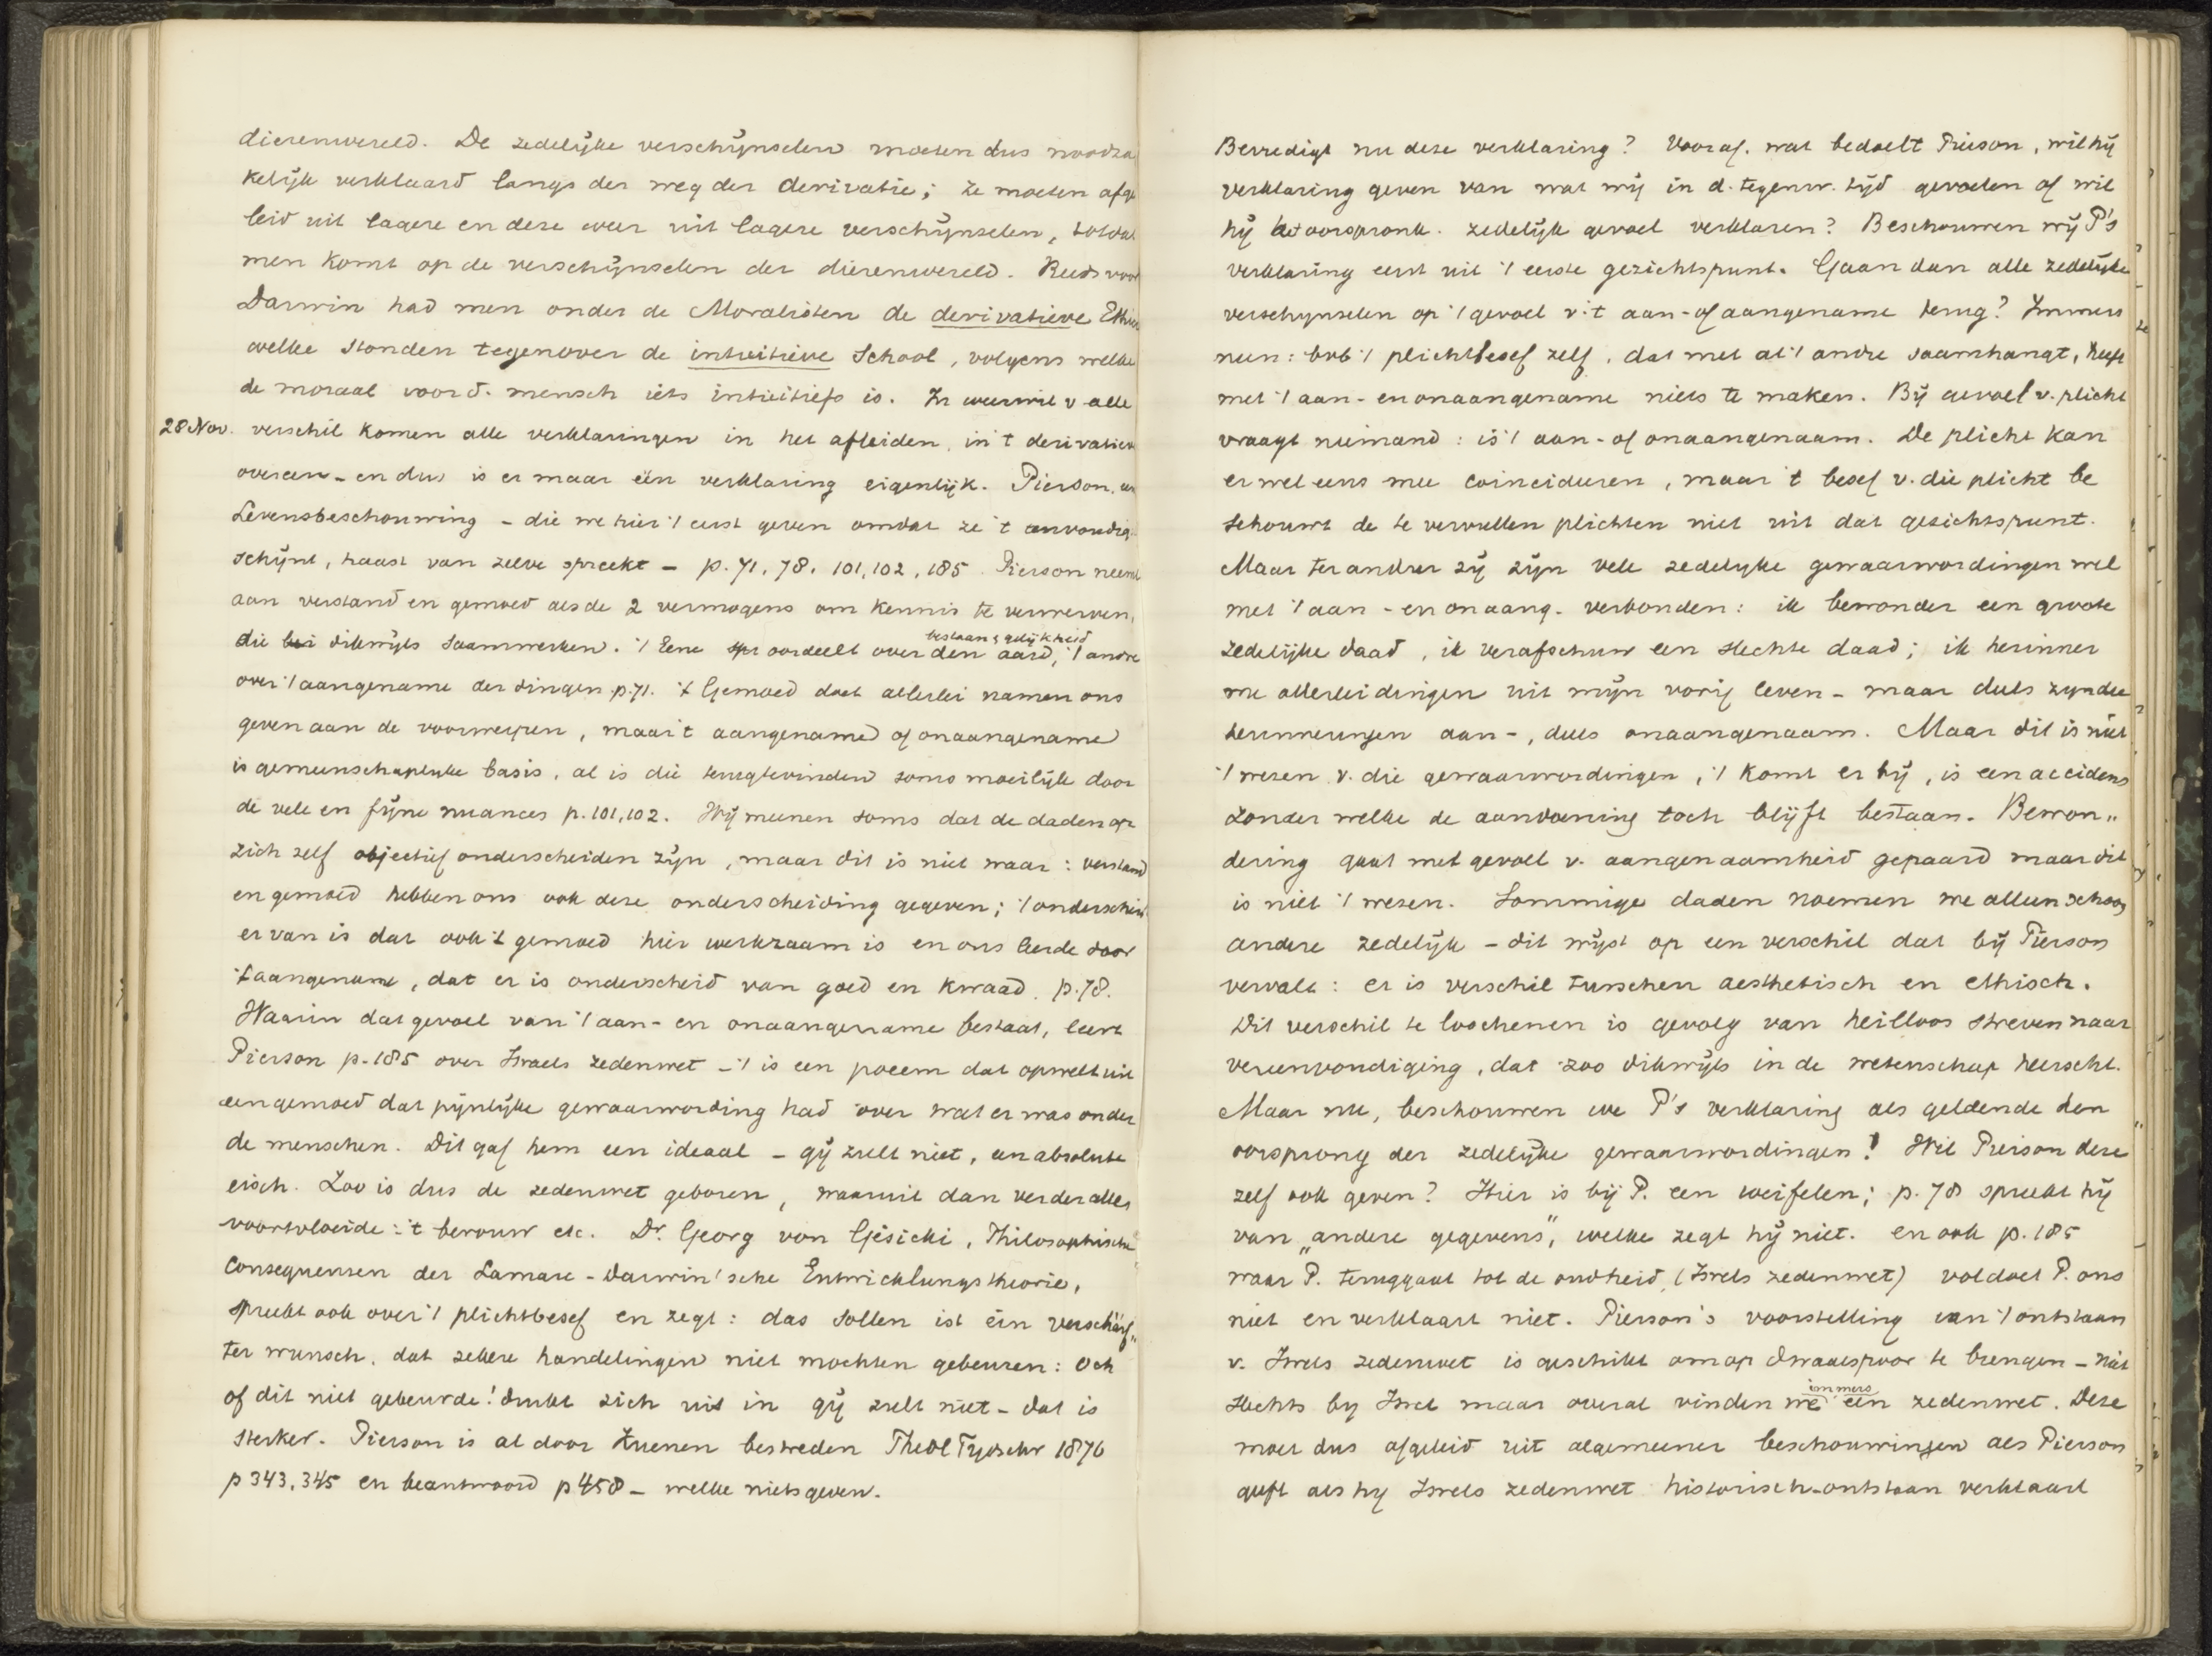 dierenwereld. De zedelijke verschijnselen moeten dus noodza
kelijk verklaard langs der weg der derivatie; ze moeten afge
leid uit lagere en deze weer uit lagere verschijnselen, totdat
men komt op de verschijnselen der dierenwereld. Reeds voor
Darwin had men onder de Moralisten de derivatieve
welke stonden tegenover de intuitieve School, volgens welke
de moraal voor d. mensch iets intuitiefs is. In weerwil v alle
28 Nov. verschil komen alle verklaringen in het afleiden, in 't derivatieve
overeen - en dus is er maar één verklaring eigenlijk. Pierson,
Levensbeschouwing - die we hier 't eerst geven omdat ze 't eenvoudig
schijnt, haast van zelve spreekt - p. 71, 78, 101, 102, 185. Pierson neemt
aan verstand en gemoed als de 2 vermogens om kennis te verwerven,
bestaan, gelijkheid
die bei dikwijls saamwerken. 't Eene oordeelt over den aard, 't andre
over 't aangename der dingen p. 71. 't Gemoed doet allerlei namen ons
geven aan de voorwerpen, maar 't aangename of onaangename
is gemeenschaplyke basis, al is die terugtevinden soms moeilijk door
de vele en fijne nuances p. 101, 102. Wij meenen soms dat de daden op
zich zelf objectief onderscheiden zijn, maar dit is niet waar: verstand
en gemoed hebben ons ook deze onderscheiding gegeven; 't onderscheid
er van is dat ook 't gemoed hier werkzaam is en ons leerde door
't aangename, dat er is onderscheid van goed en kwaad. p. 78.
Waarin dat gevoel van 't aan- en onaangename bestaat, leert
Pierson p. 185 over Israels zedenwet - 't is een poeem dat opwelt uit
een gemoed dat pijnlijke gewaarwording had over wat er was onder
de menschen. Dit gaf hem een ideaal - gij zult niet, een absolute
eisch. Zoo is dus de zedenwet geboren, waaruit dan verder alles
voortvloeide: 't berouw etc. Dr. Georg von Gisicki, Philosophische
Consequenzen der Lamarc-Darwin'sche Entwicklungstheorie,
spreekt ook over 't plichtbesef en zegt: das Sollen ist ein verschärf„
ter wunsch, dat zekere handelingen niet mochten gebeuren: och
of dit niet gebeurde! drukt zich uit in gij zult niet - dat is
sterker. Pierson is al door Kuenen bestreden Theol Tydschr 1876
p 343, 345 en beantwoord p 458 - welke niets geven.
Bevredigt nu deze verklaring? Vooraf. wat bedoelt Pierson, wil hij
verklaring geven van wat wij in d. tegenw. tijd gevoelen of wil
hij het oorspronk. zedelijk gevoel verklaren? Beschouwen wij P's
verklaring eerst uit 't eerste gezichtspunt. Gaan dan alle zedelijke
verschynselen op 't gevoel v. 't aan- of aangename terug? Immers
neen: bvb 't plichtbesef zelf, dat met al 't andre saamhangt, heeft
met 't aan- en onaangename niets te maken. Bij gevoel v. plicht
vraagt niemand: is 't aan- of onaangenaam. De plicht kan
er wel eens mee coincideeren, maar 't besef v. die plicht be
schouwt de te vervullen plichten niet uit dat gezichtspunt.
Maar ter andrer zij zijn vele zedelyke gewaarwordingen wel
met 't aan- en onaang. verbonden: ik bewonder een groote
zedelijke daad, ik verafschuw een slechte daad; ik herinner
me allerlei dingen uit mijn vorig leven - maar deels zynde
herinneringen aan-, deels onaangenaam. Maar dit is niet
't wezen v. die gewaarwordingen, 't komt er bij, is een accidens
zonder welke de aandoening toch blijft bestaan. Bewon„
dering gaat met gevoel v. aangenaamheid gepaard maar dit
is niet 't wezen. Sommige daden noemen we alleen schoon
andere zedelijk - dit wijst op een verschil dat bij Pierson
vervalt: er is verschil tusschen aesthetisch en ethisch.
Dit verschil te loochenen is gevolg van heilloos streven naar
vereenvoudiging, dat zoo dikwijls in de wetenschap heerscht.
Maar nu, beschouwen we P's verklaring als geldende den
oorsprong der zedelijke gewaarwordingen! Wil Pierson deze
zelf ook geven? Hier is bij P. een weifelen; p. 78 spreekt hij
van „andere gegevens", welke zegt hij niet. en ook p. 185
waar P. teruggaat tot de oudheid, (Isrels zedenwet) voldoet P. ons
niet en verklaart niet. Pierson's voorstelling van 't ontstaan
v. Isrels zedenwet is geschikt om op dwaalspoor te brengen - niet
immers
slechts by Isrel maar overal vinden we een zedenwet. Deze
moet dus afgeleid uit algemeener beschouwingen als Pierson
geeft als hy Isrels zedenwet historisch-ontstaan verklaart